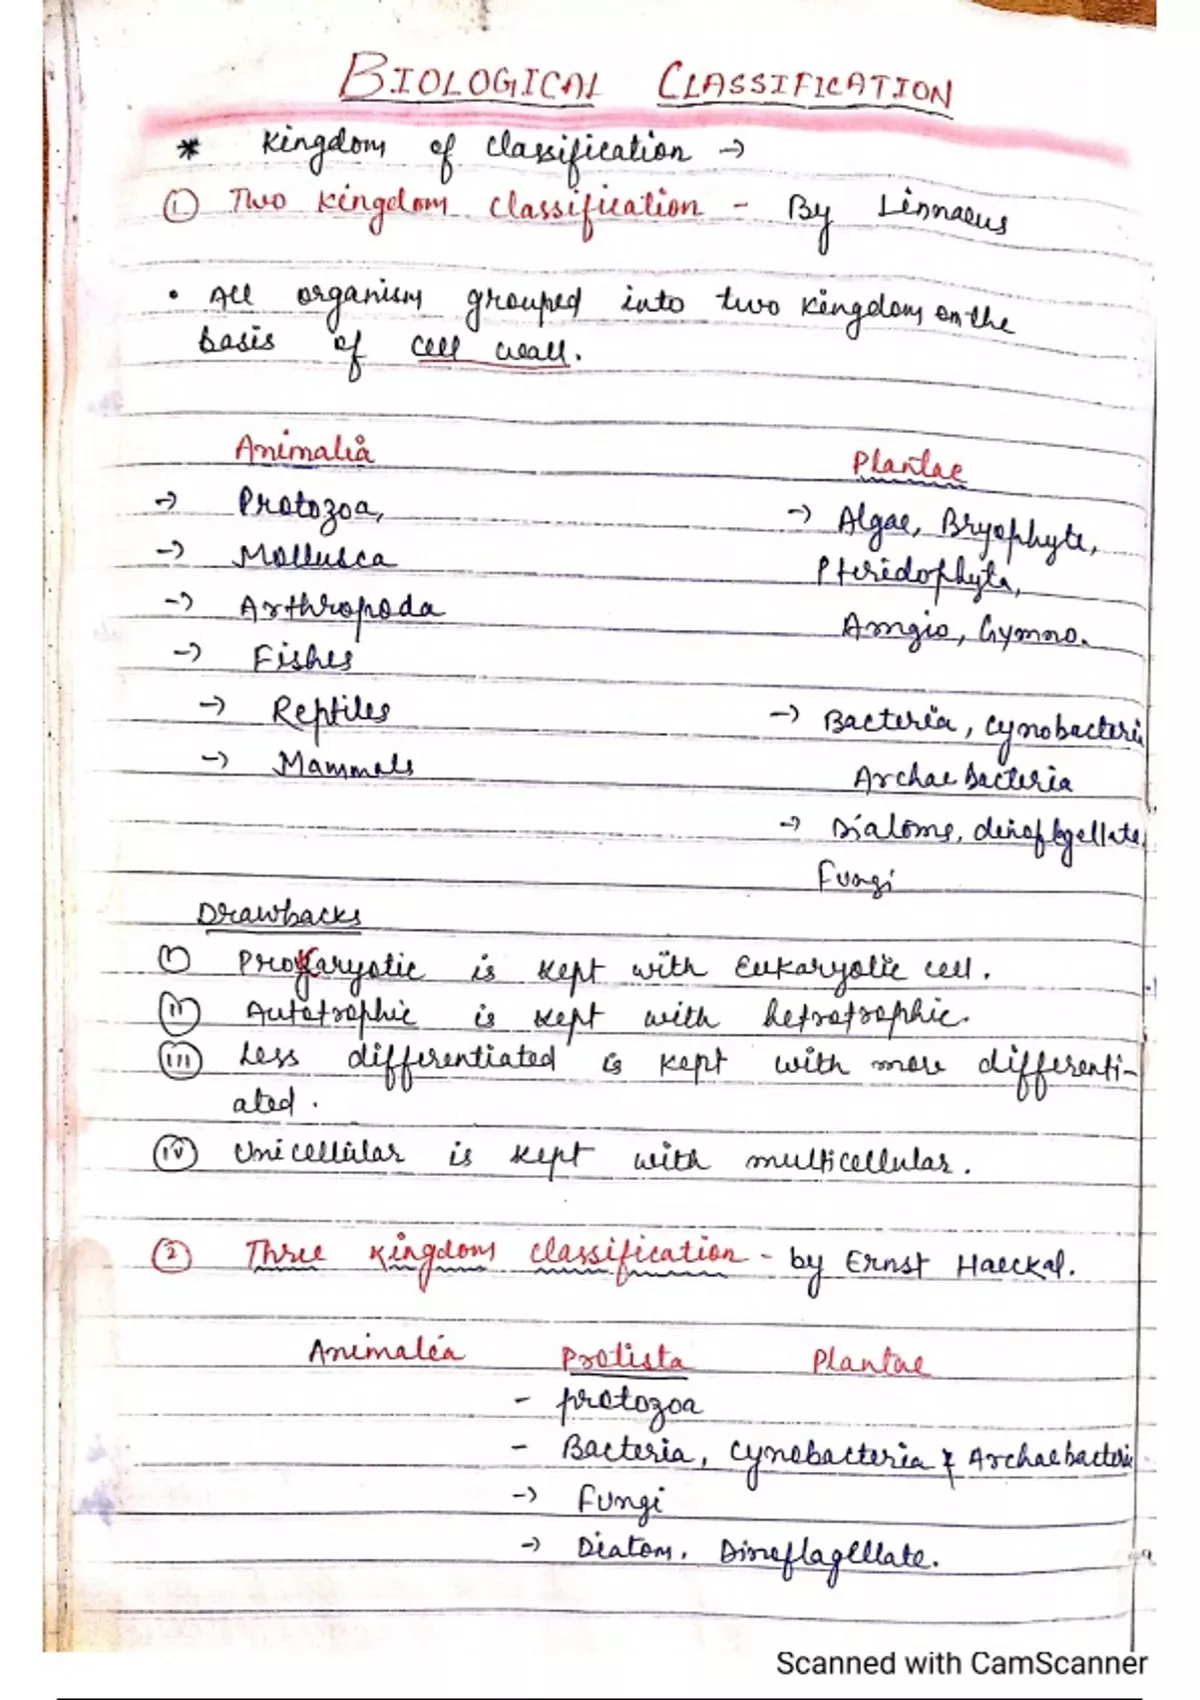 BIOLOGICAL CLASSIFICATION
* Kingdom of classification →
① Two Kingdom classification - By Linnaeus
• All organism grouped into two kingdom on the
basis of cell wall.
Animalia Plantae
→ Protozoa, → Algae, Bryophyte,
→ Mollusca Pteridophyta,
→ Arthropoda Amgio, Gymno.
→ Fishes
→ Reptiles → Bacteria, cynobacteri
→ Mammals Archae bacteria
→ Diatoms, dinoflagellate,
Fungi
Drawbacks
(i) Prokaryotic is kept with Eukaryotic cell.
(ii) Autotrophic is kept with hetrotrophic.
(iii) Less differentiated is kept with more differenti-
ated.
(iv) Unicellular is kept with multicellular.
② Three kingdom classification - by Ernst Haeckal.
Animalia Protista Plantae
- protozoa
- Bacteria, cynobacteria & Archaebacteri
→ Fungi
→ Diatom. Dinoflagellate.
Scanned with CamScanner